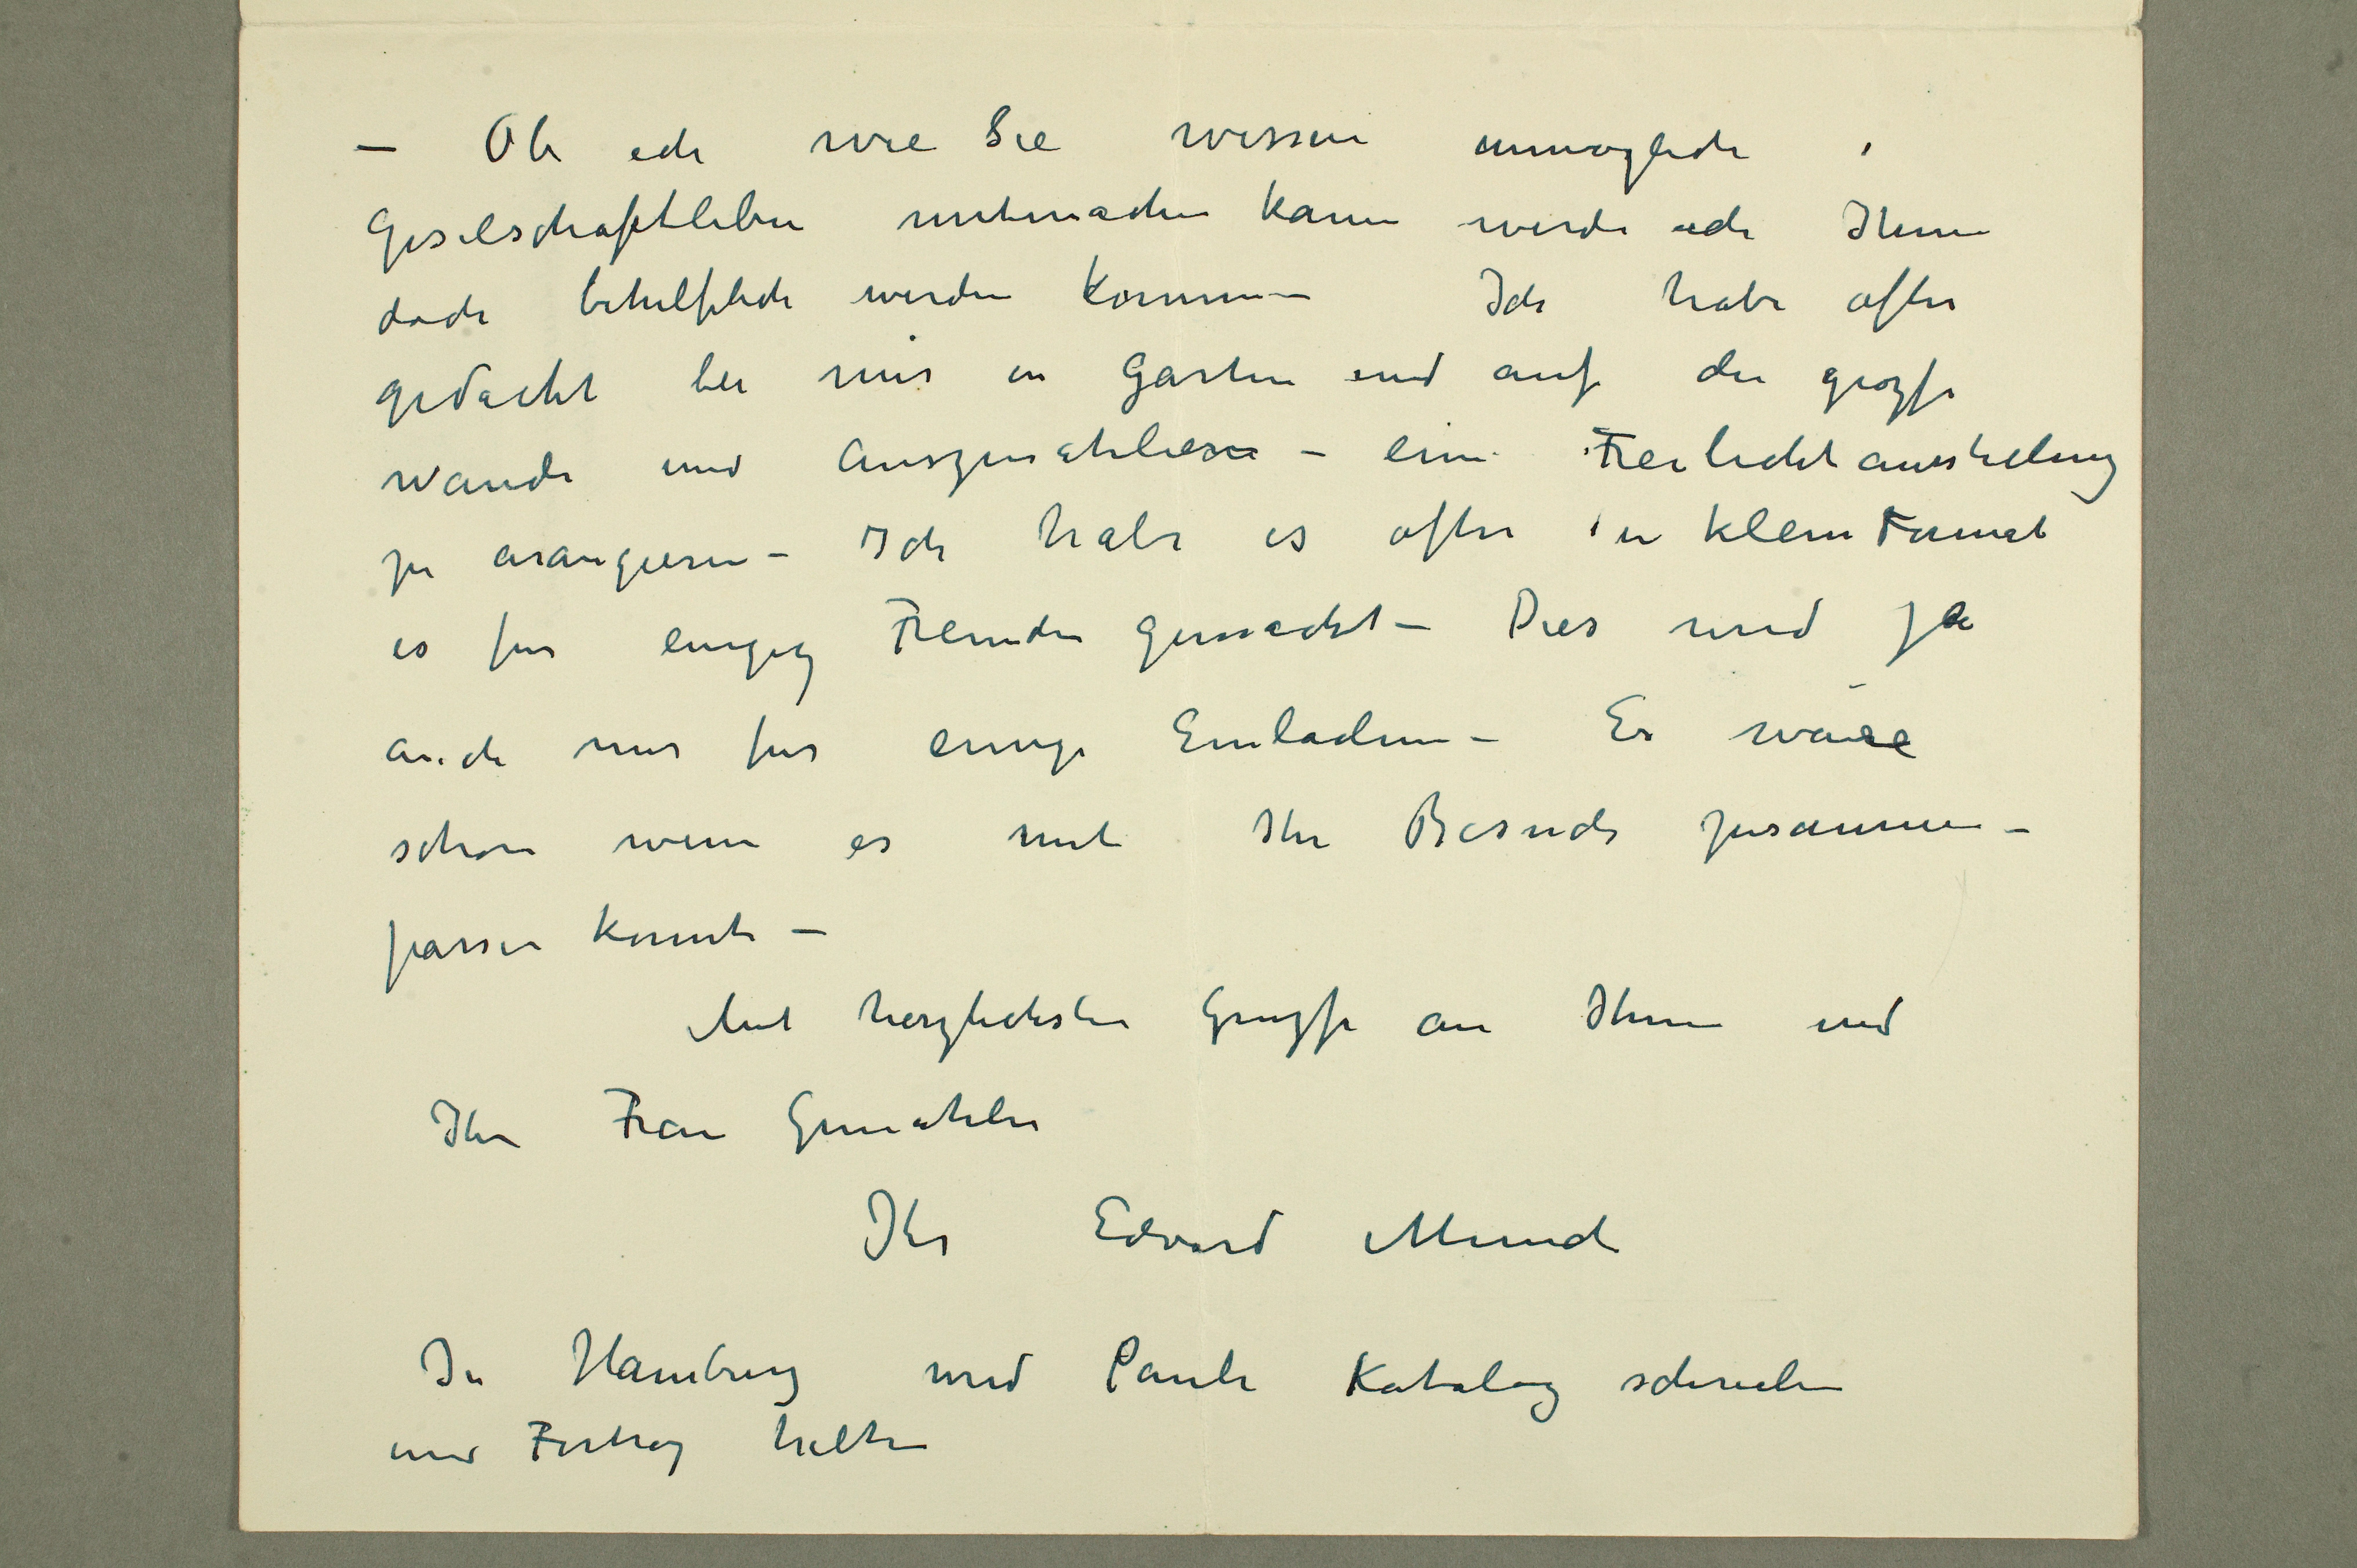 – Ob ich wie Sie wissen unmöglich i
Geselschaftleben mitmachen kann werde ich Ihnen
doch behilflich werden können – Ich habe öfter
gedacht bei mir in Garten und auf die grozse
Wände und Auszenateliern – eine Freilichtausstelung
zu arangieren – Ich habe es öfter in klein Format
es für einzig Fremden gemacht – Dies wird ja
auch nur für einige Einladene – Es wäre
schön wenn es mit Ihr Besuch zusammen –
passen konnte –
Mit herzlichsten Gruzse an Ihnen und
Ihre Frau Gemahlin
Ihr Edvard Munch
In Hamburg wird Pauli Katalog schreiben
und Fortrag halten